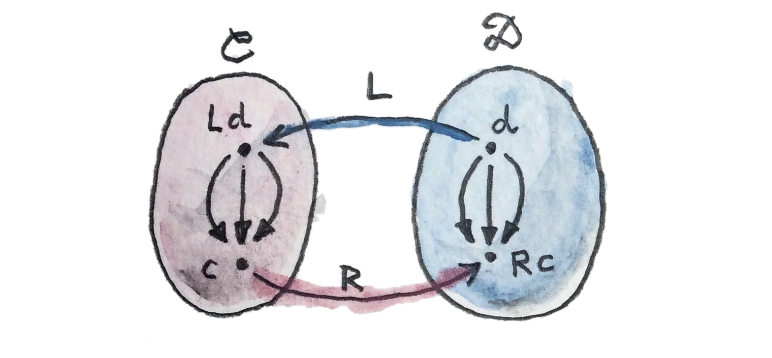 C D
L
Ld d
c R Rc